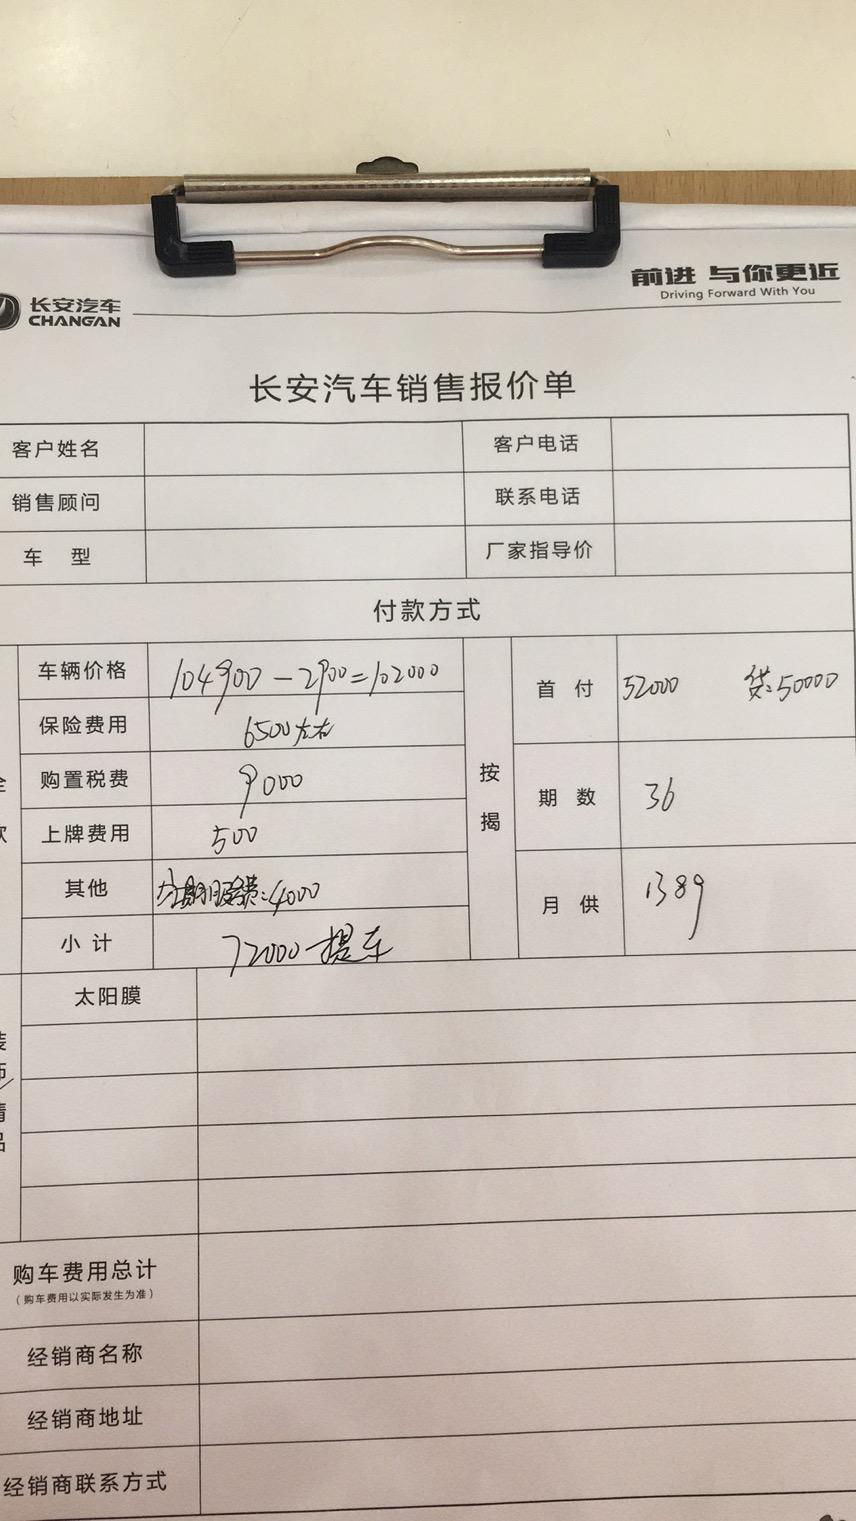 前进 与你更近
Driving Forward With You
长安汽车
CHANGAN
长安汽车销售报价单
客户姓名 客户电话
销售顾问 联系电话
车 型 厂家指导价
付款方式
车辆价格 104900-2900=102000
保险费用 6500左右
购置税费 9000
上牌费用 500
其他 服务费:4000
小计 72000 提车
全款
按揭
首付 52000 贷:50000
期数 36
月供 1389
装饰精品
太阳膜
购车费用总计
(购车费用以实际发生为准)
经销商名称
经销商地址
经销商联系方式